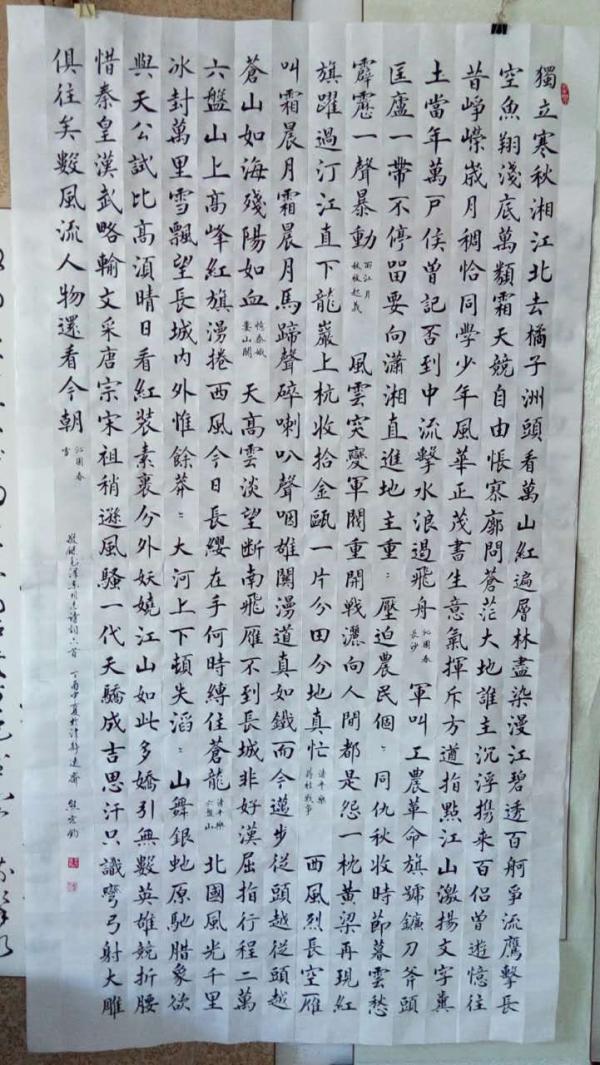 獨立寒秋湘江北去橘子洲頭看萬山紅遍層林盡染漫江碧透百舸爭流鷹擊長
空魚翔淺底萬類霜天競自由悵寥廓問蒼茫大地誰主沉浮携来百侣曾遊憶往
昔崢嶸歲月稠恰同學少年風華正茂書生意氣揮斥方遒指點江山激揚文字糞
土當年萬戶侯曾記否到中流擊水浪遏飛舟 沁園春 長沙 軍叫工農革命旗號鐮刀斧頭
匡廬一帶不停留要向瀟湘直進地主重〻壓迫農民個〻同仇秋收時節暮雲愁
霹靂一聲暴動 西江月 秋收起義 風雲突變軍閥重開戰灑向人間都是怨一枕黃梁再現紅
旗躍過汀江直下龍巖上杭收拾金甌一片分田分地真忙 清平樂 蔣桂戰爭 西風烈長空雁
叫霜晨月霜晨月馬蹄聲碎喇叭聲咽雄關漫道真如鐵而今邁步從頭越從頭越
蒼山如海殘陽如血 憶秦娥 婁山關 天高雲淡望斷南飛雁不到長城非好漢屈指行程二萬
六盤山上高峰紅旗漫捲西風今日長纓在手何時縛住蒼龍 清平樂 六盤山 北國風光千里
冰封萬里雪飄望長城內外惟餘莽〻大河上下頓失滔〻山舞銀蛇原馳腊象欲
與天公試比高須晴日看紅裝素裹分外妖嬈江山如此多嬌引無數英雄競折腰
惜秦皇漢武略輸文采唐宗宋祖稍遜風騷一代天驕成吉思汗只識彎弓射大雕
俱往矣數風流人物還看今朝 沁園春 雪
毛澤東同志詩詞六首 丁酉中夏於